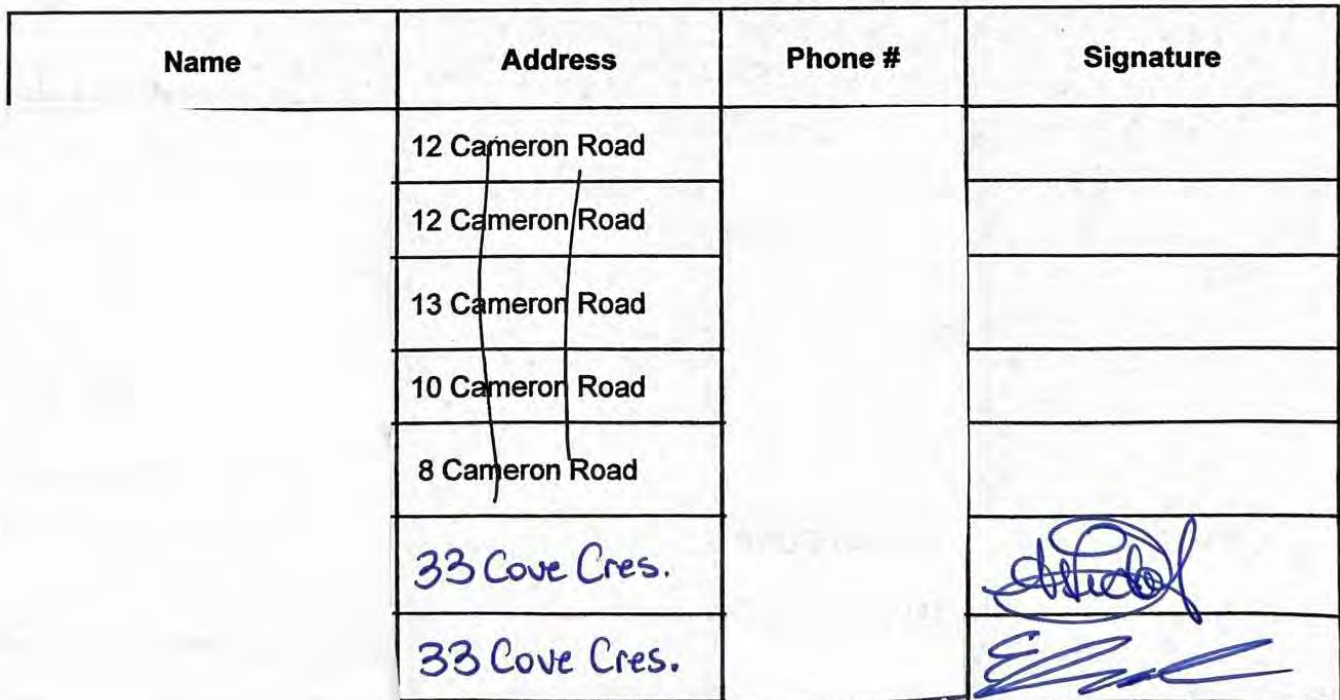 Name Address Phone # Signature
12 Cameron Road
12 Cameron Road
13 Cameron Road
10 Cameron Road
8 Cameron Road
33 Cove Cres.
33 Cove Cres.